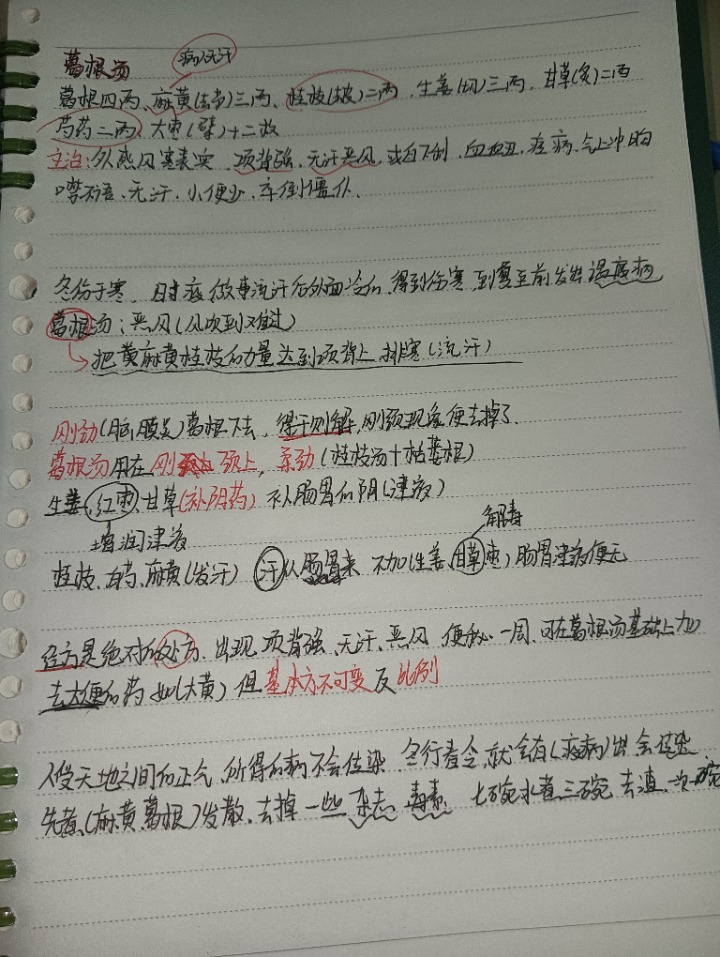 葛根汤 病人无汗
葛根四两、麻黄(去节)三两、桂枝(去皮)二两、生姜(切)三两、甘草(炙)二两
芍药二两、大枣(擘)十二枚
主治:外感风寒表实、项背强、无汗恶风、或自下利、血衄、痉病、气上冲胸
口噤不语、无汗、小便少、卒倒僵仆、
冬伤于寒、做事流汗后外面冷、得到伤寒 到夏至前发出温疫病
葛根汤:恶风(风吹到难过)
把黄麻黄桂枝的力量达到项背上、排寒(流汗)
刚劲(脑膜炎)葛根下去、得汗则解、刚颈现象便去掉了
葛根汤用在刚 颈上、柔劲(桂枝汤+栝蒌根)
生姜、红枣、甘草(补阴药) 补肠胃的阴(津液)
增润津液 解毒
桂枝、白药、麻黄(发汗) 汗从肠胃来 不加(生姜、甘草、枣)肠胃津液便无
经方是绝对的处方、出现 项背强、无汗、恶风 便秘一周、可在葛根汤基础上加
去大便的药 如(大黄) 但基本方不可变反比例
人受天地之间的正气、所得的病不会传染 冬行春令、就会有(疫病)出
先煮、(麻黄葛根)发散、去掉一些 毒素 七碗水煮三碗 去渣、一次一碗